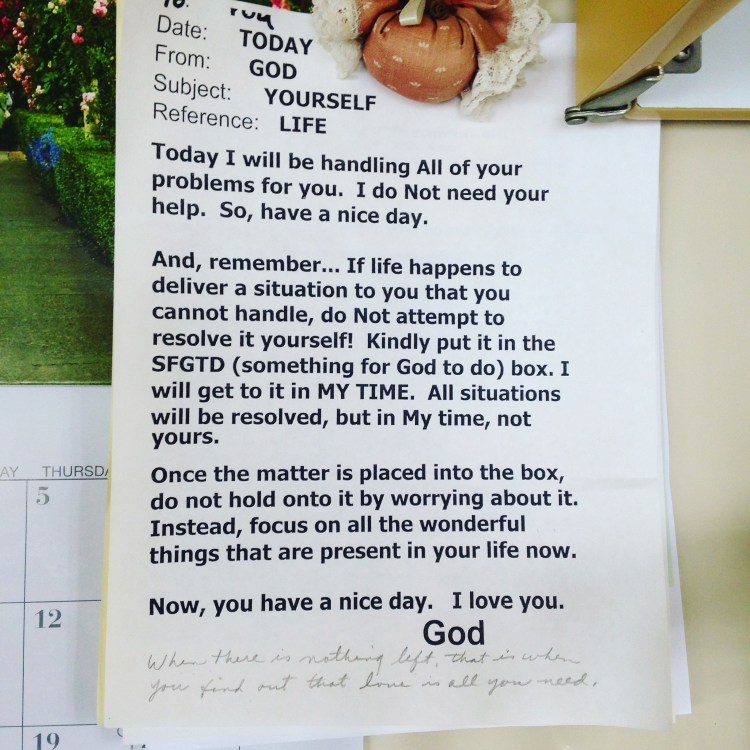 To: You
Date: TODAY
From: GOD
Subject: YOURSELF
Reference: LIFE
Today I will be handling All of your
problems for you. I do Not need your
help. So, have a nice day.
And, remember... If life happens to
deliver a situation to you that you
cannot handle, do Not attempt to
resolve it yourself! Kindly put it in the
SFGTD (something for God to do) box. I
will get to it in MY TIME. All situations
will be resolved, but in My time, not
yours.
Once the matter is placed into the box,
do not hold onto it by worrying about it.
Instead, focus on all the wonderful
things that are present in your life now.
Now, you have a nice day. I love you.
God
When there is nothing left, that is when
you find out that love is all you need.
AY THURSDA
5
12
19